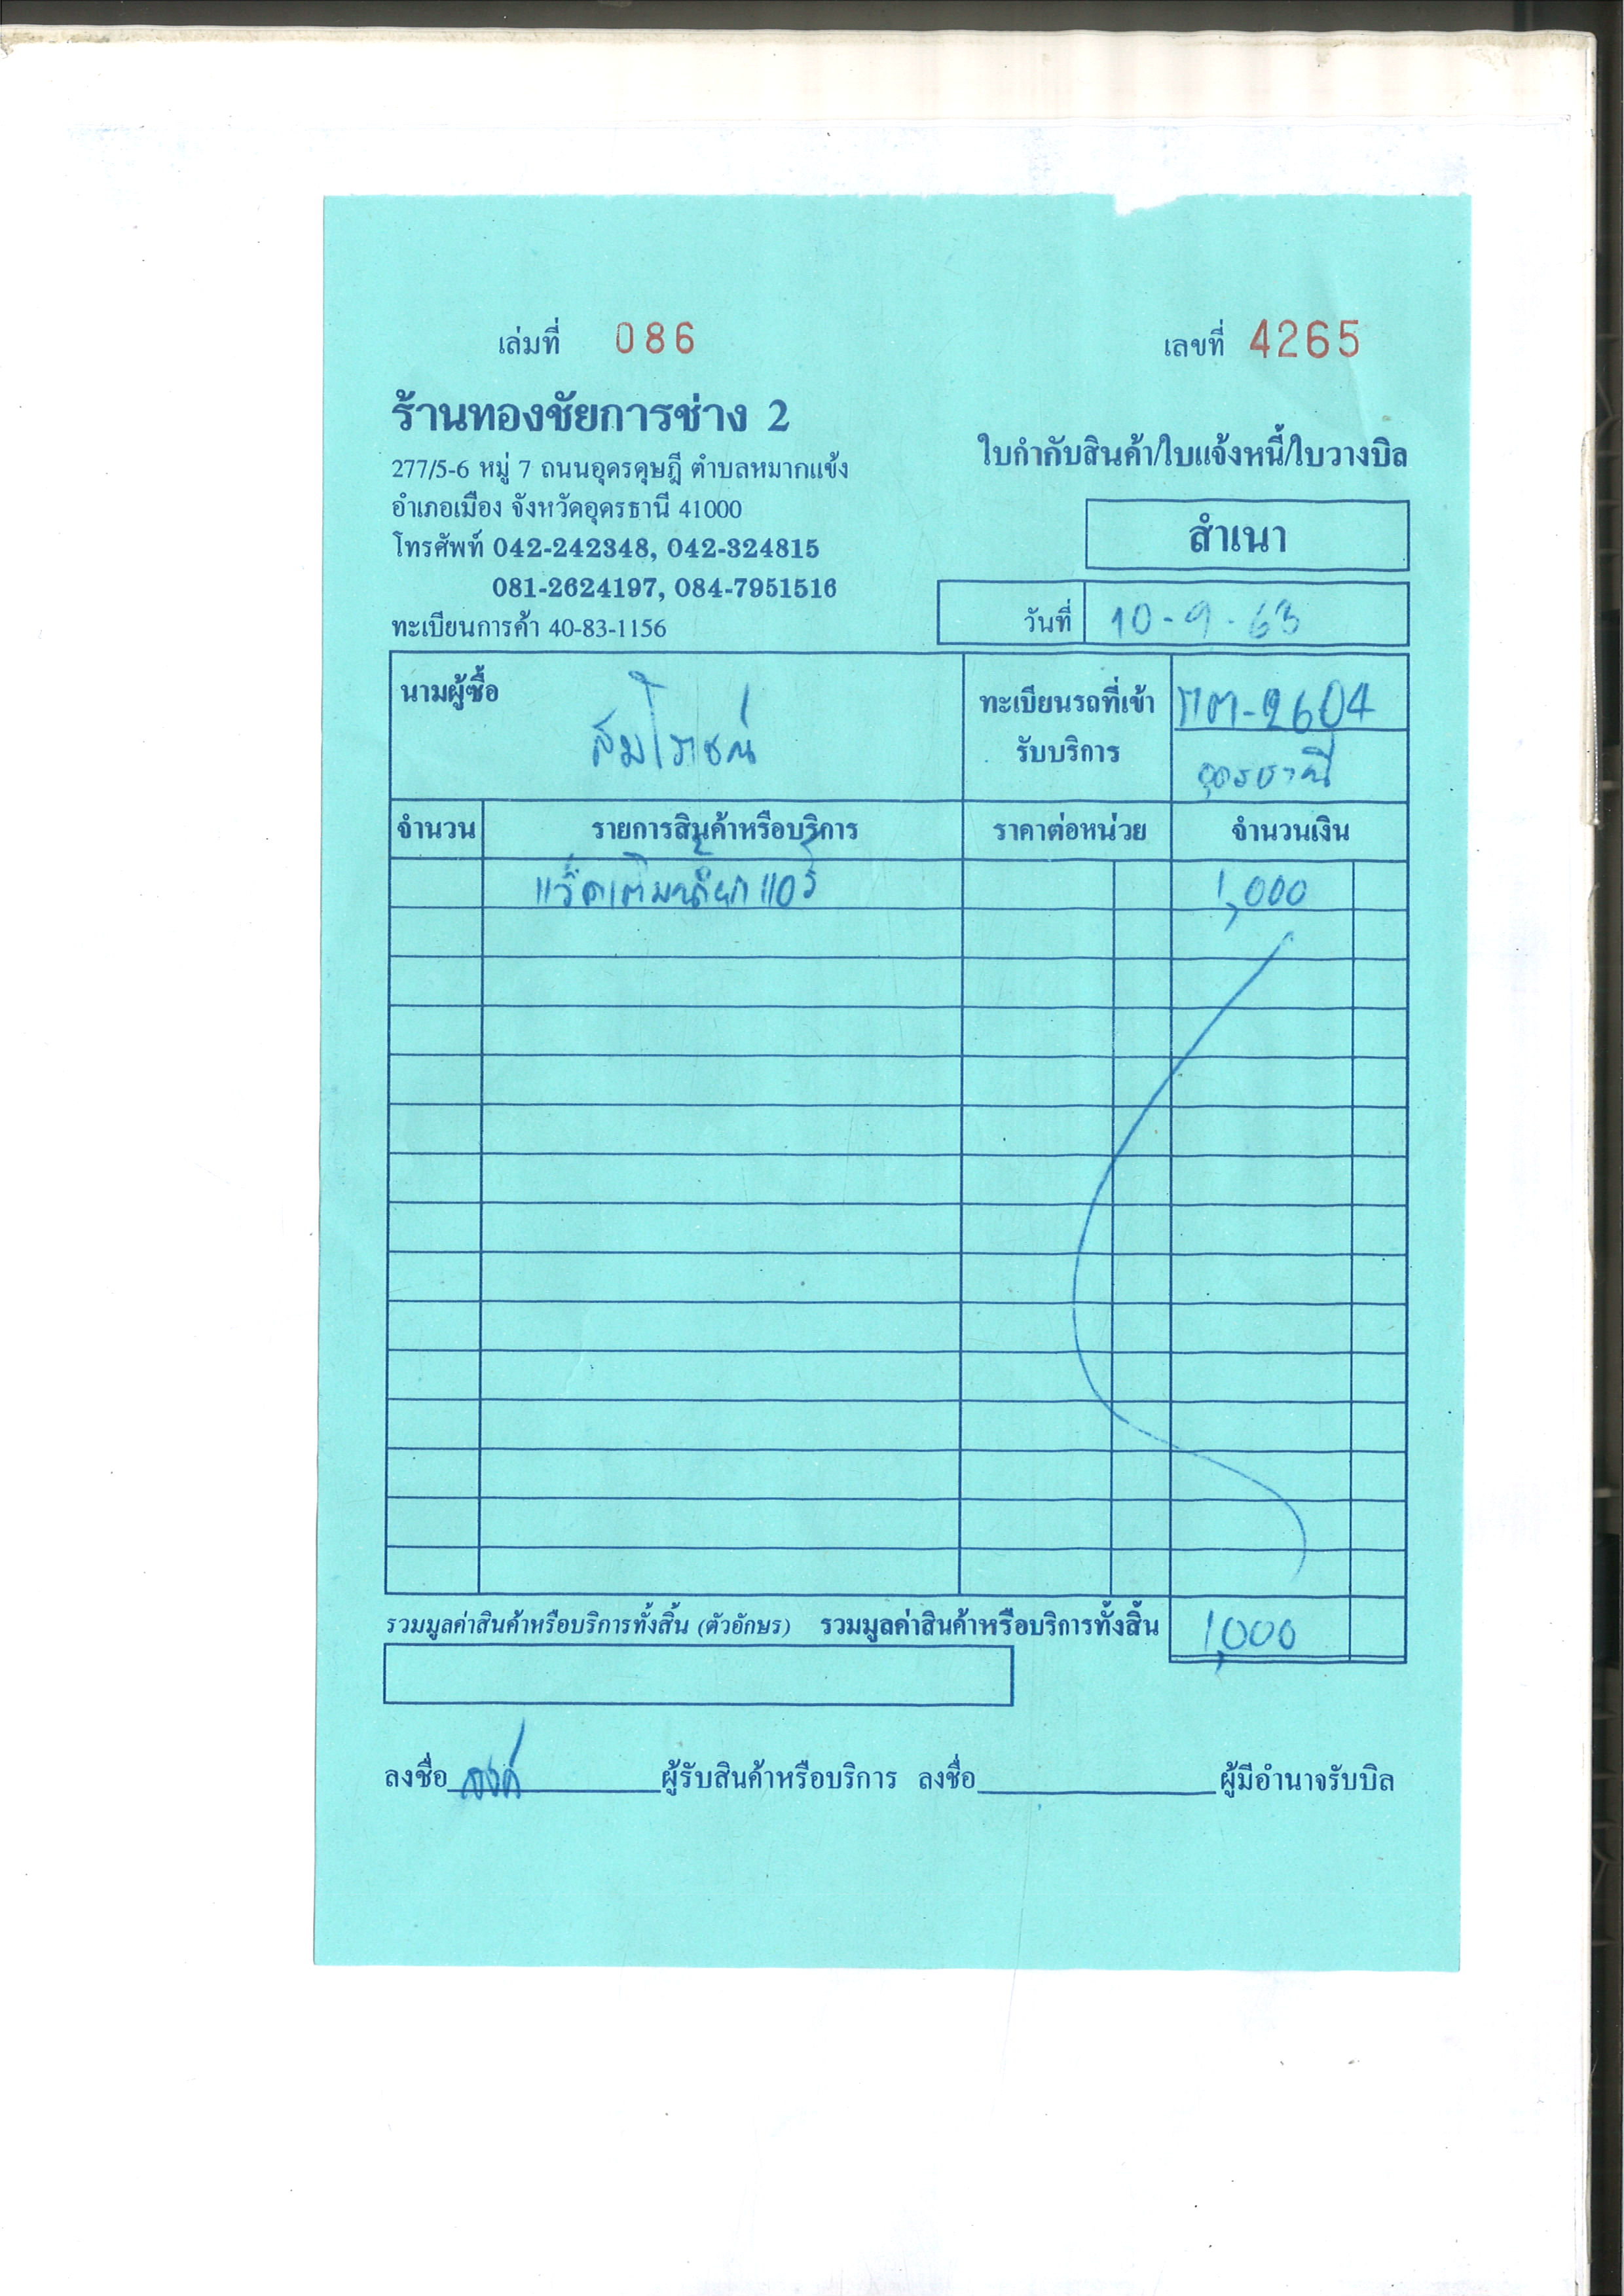 เล่มที่ 086
เลขที่ 4265
ร้านทองชัยการช่าง 2
277/5-6 หมู่ 7 ถนนอุดรดุษฎี ตำบลหมากแข้ง
อำเภอเมือง จังหวัดอุดรธานี 41000
โทรศัพท์ 042-242348, 042-324815
081-2624197, 084-7951516
ทะเบียนการค้า 40-83-1156
ใบกำกับสินค้า/ใบแจ้งหนี้/ใบวางบิล
สำเนา
วันที่ 10-9-63
นามผู้ซื้อ สมโรชณ์
ทะเบียนรถที่เข้า กต-2604
รับบริการ อุดรธานี
จำนวน รายการสินค้าหรือบริการ ราคาต่อหน่วย จำนวนเงิน
แว็คเติมน้ำยาแอร์ 1,000
รวมมูลค่าสินค้าหรือบริการทั้งสิ้น (ตัวอักษร) รวมมูลค่าสินค้าหรือบริการทั้งสิ้น 1,000
ลงชื่อ ผู้รับสินค้าหรือบริการ ลงชื่อ ผู้มีอำนาจรับบิล